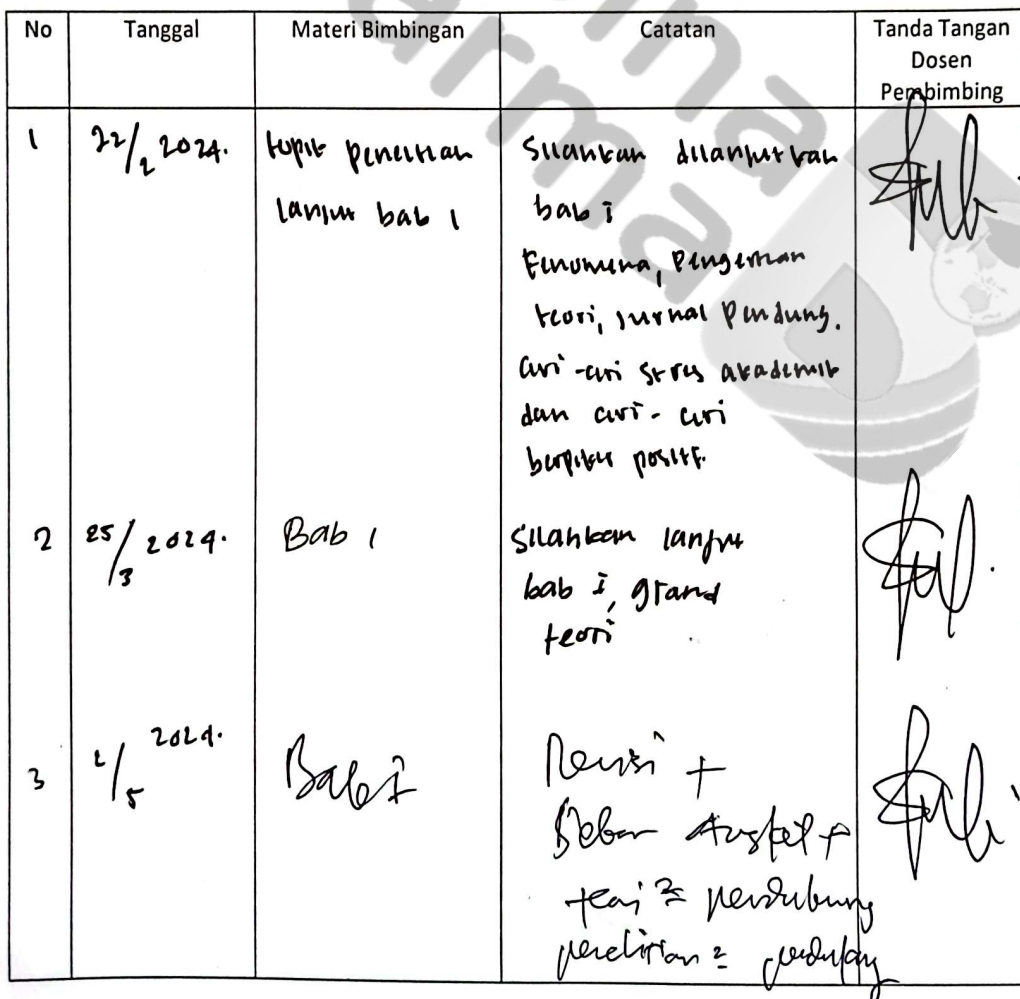 No Tanggal Materi Bimbingan Catatan Tanda Tangan Dosen Pembimbing
1 22/2 2024. topik penelitian Silahkan dilanjutkan
lanjut bab 1 bab I
Fenomena, Pengertian
teori, jurnal Pendung.
ciri-ciri stres akademik
dan ciri-ciri
berpikir positif.
2 25/3 2024. Bab 1 Silahkan lanjut
bab I, grand
teori
3 2/5 2024. Bab I Revisi +
Sebar +
teori² pendukung
penelitian²